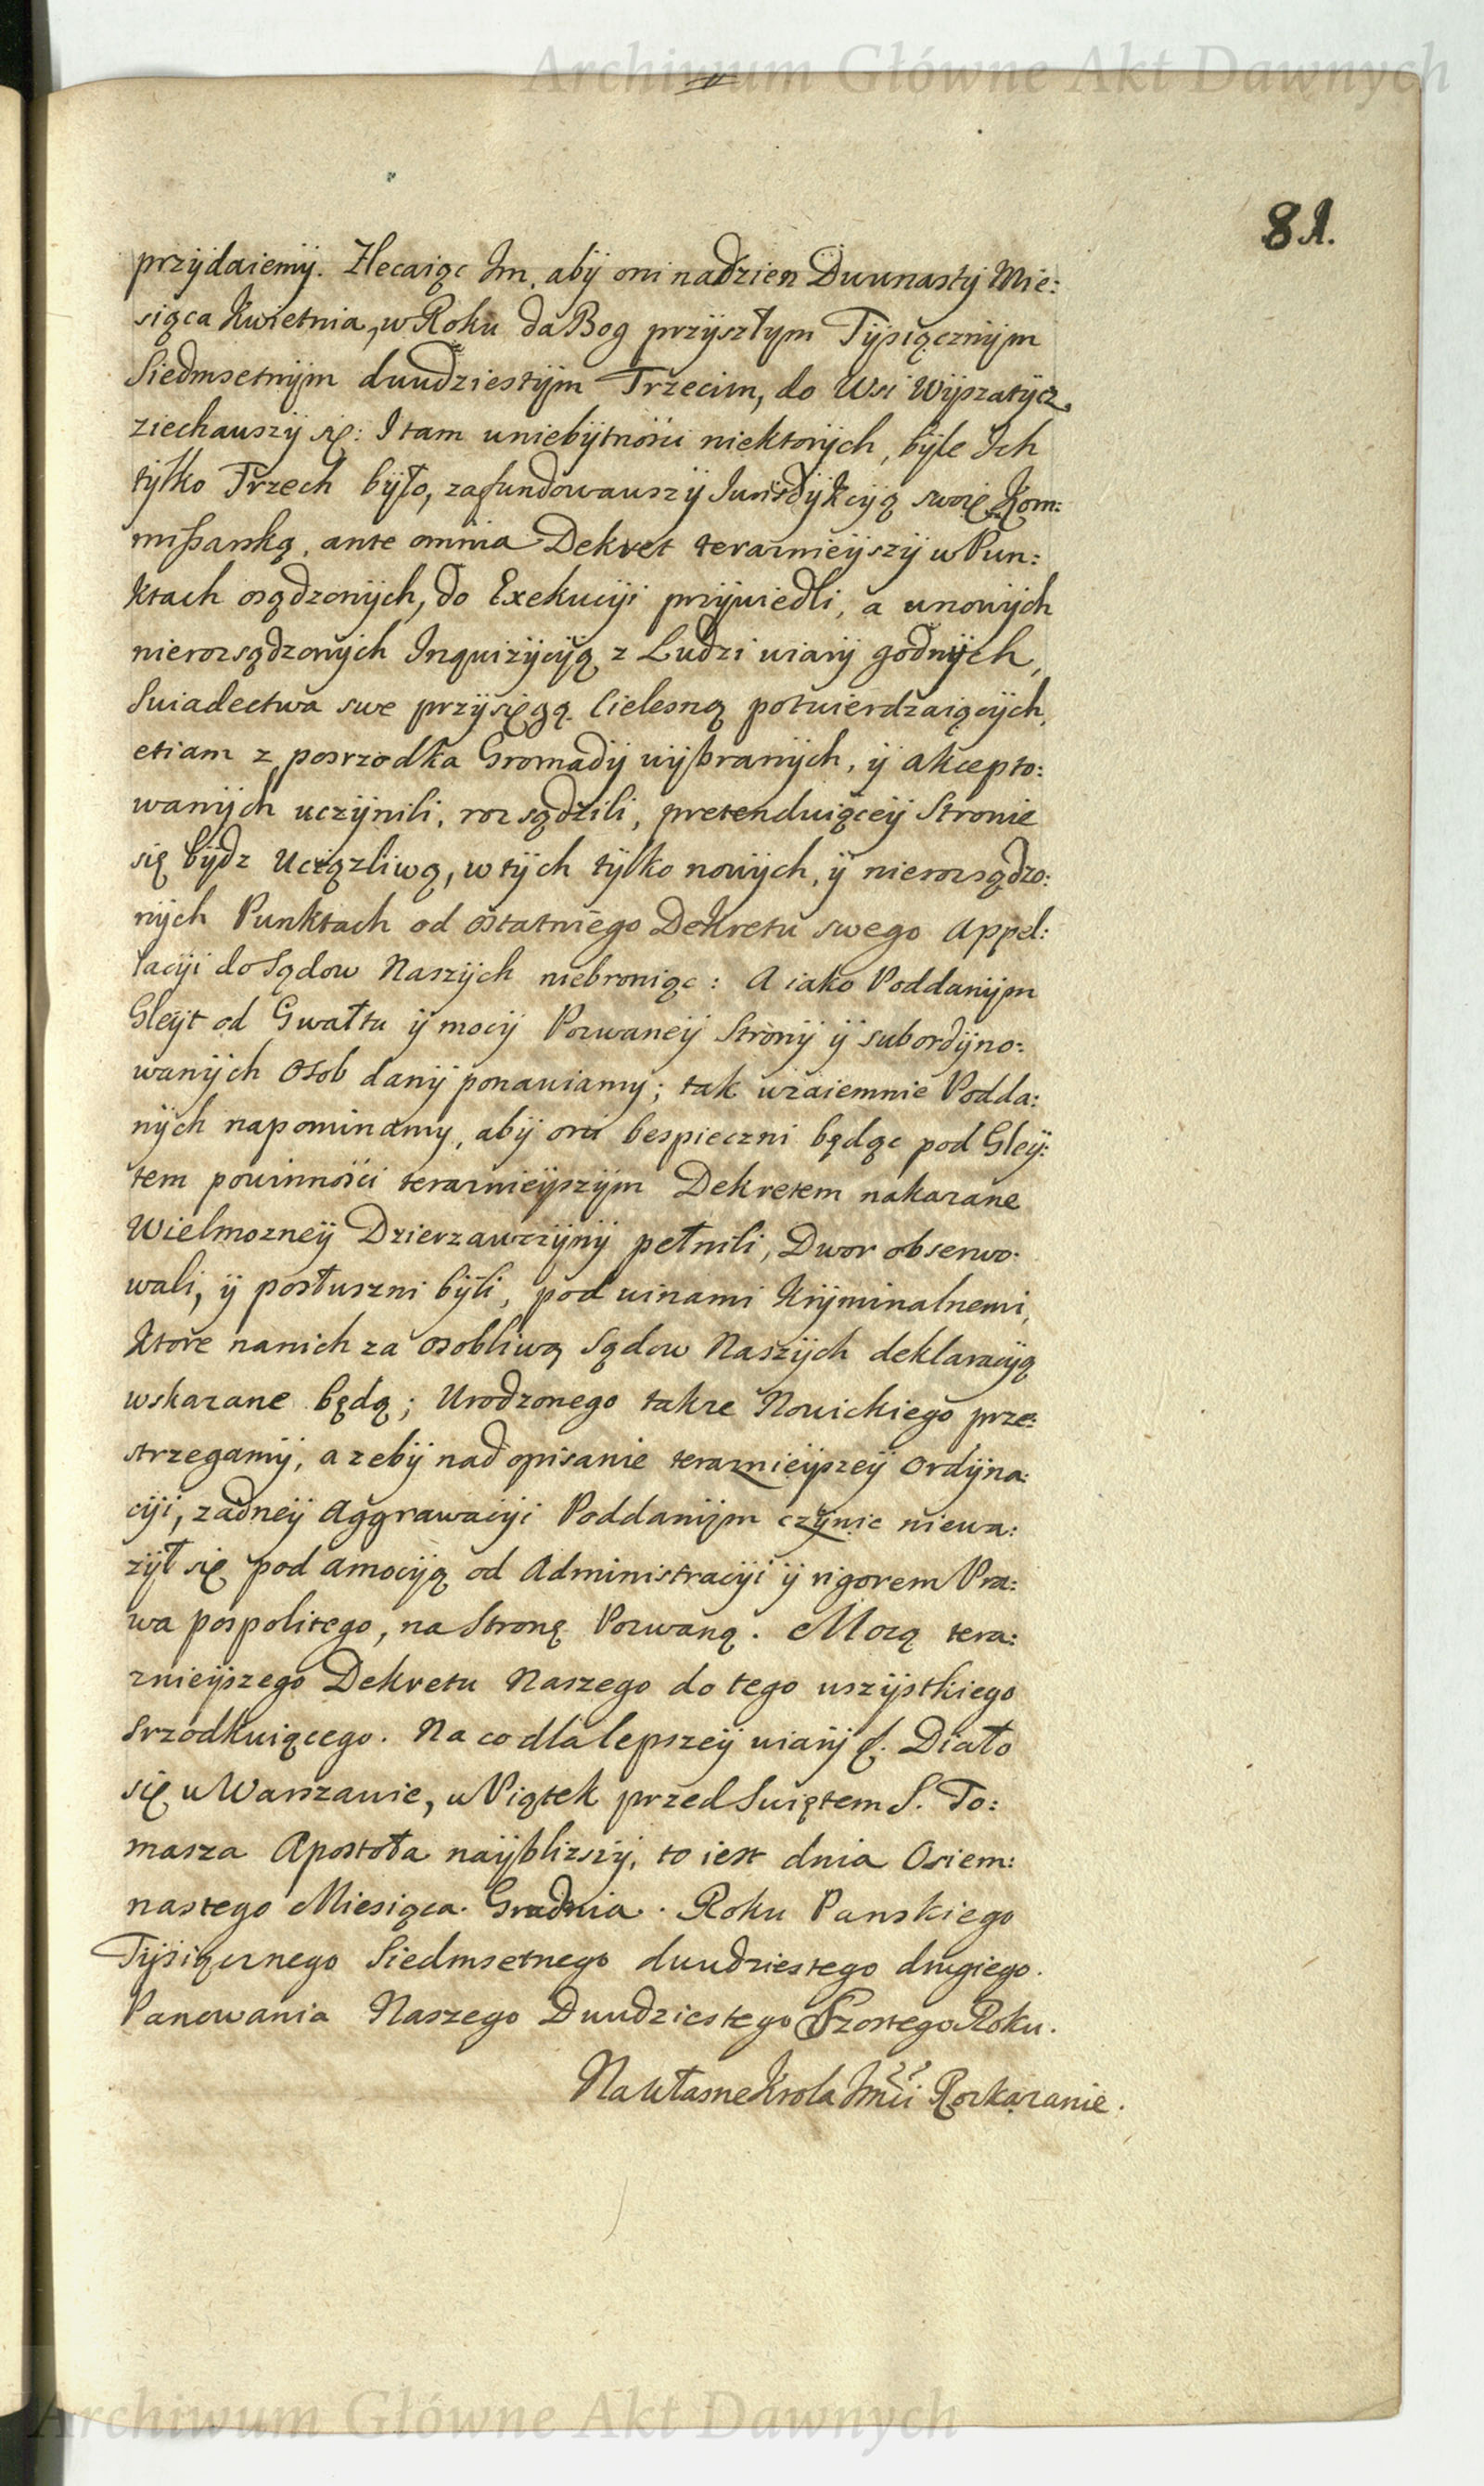 Archiwum Główne Akt Dawnych
81.
przÿdaiemÿ. Zlecaiąc Im, abÿ oni nadzien Dwunastÿ Mie:
siąca Kwietnia, w Roku da Bog przÿszłym Tÿsiącznÿm
Siedmsetnÿm dwudziestÿm Trzecim, do Wsi Wÿszatÿcz
ziechawszÿ się: I tam wniebÿtnosci niektorÿch, bÿle Ich
tÿlko Trzech bÿło, zafundowawszÿ Iurisdÿkcÿą swoię Kom:
mißarską, ante omnia Dekret teraznieÿszÿ w Pun:
ktach osądzonÿch, do Exekucÿi przÿwiedli, a wnowÿch
nierozsądzonÿch Inquizÿcÿą z Ludzi wiarÿ godnÿch,
Swiadectwa swe przÿsięgą Cielesną potwierdzaiącÿch,
etiam z posrzodka Gromadÿ wÿbranÿch, ÿ akcepto:
wanÿch uczÿnili, rozsądzili, pretenduiąceÿ Stronie
się bÿdz Uciązliwą, w tÿch tÿlko nowÿch, ÿ nierozsądzo:
nÿch Punktach od ostatniego Dekretu swego Appel:
lacÿi do Sądow Naszÿch niebroniąc: A iako Poddanÿm
Gleÿt od Gwałtu ÿ mocÿ Pozwaneÿ Stronÿ ÿ subordÿno:
wanÿch Osob danÿ ponawiamy; tak wzaiemnie Podda:
nÿch napominamy, abÿ oni bespieczni będąc pod Gleÿ:
tem powinnosci teraznieÿszÿm Dekretem nakazane
Wielmozneÿ Dzierzawczÿnÿ pełnili, Dwor obserwo:
wali, ÿ posłuszni bÿli, pod winami Krÿminalnemi,
Ktore nanich za osobliwą Sądow Naszÿch deklaracÿą
wskazane będą; Urodzonego takze Nowickiego prze:
strzegamÿ, azebÿ nad opisanie teraznieÿszeÿ Ordÿna:
cÿi, zadneÿ Aggrawacÿi Poddanÿm czÿnic niewa:
zÿł się pod amocÿą od Administracÿi ÿ rigorem Pra:
wa pospolitego, na Stronę Pozwaną. Mocą tera:
znieÿszego Dekretu Naszego do tego wszÿstkiego
srzodkuiącego. Na co dla lepszeÿ wiarÿ &. Działo
się w Warszawie, w Piątek przed Swiętem S. To:
masza Apostoła naÿblizszÿ, to iest dnia Osiem:
nastego Miesiąca Grudnia. Roku Panskiego
Tÿsiącznego Siedmsetnego dwudziestego drugiego.
Panowania Naszego Dwudziestego Szostego Roku.
Na własne Krola Jmci Rozkazanie.
Archiwum Główne Akt Dawnych